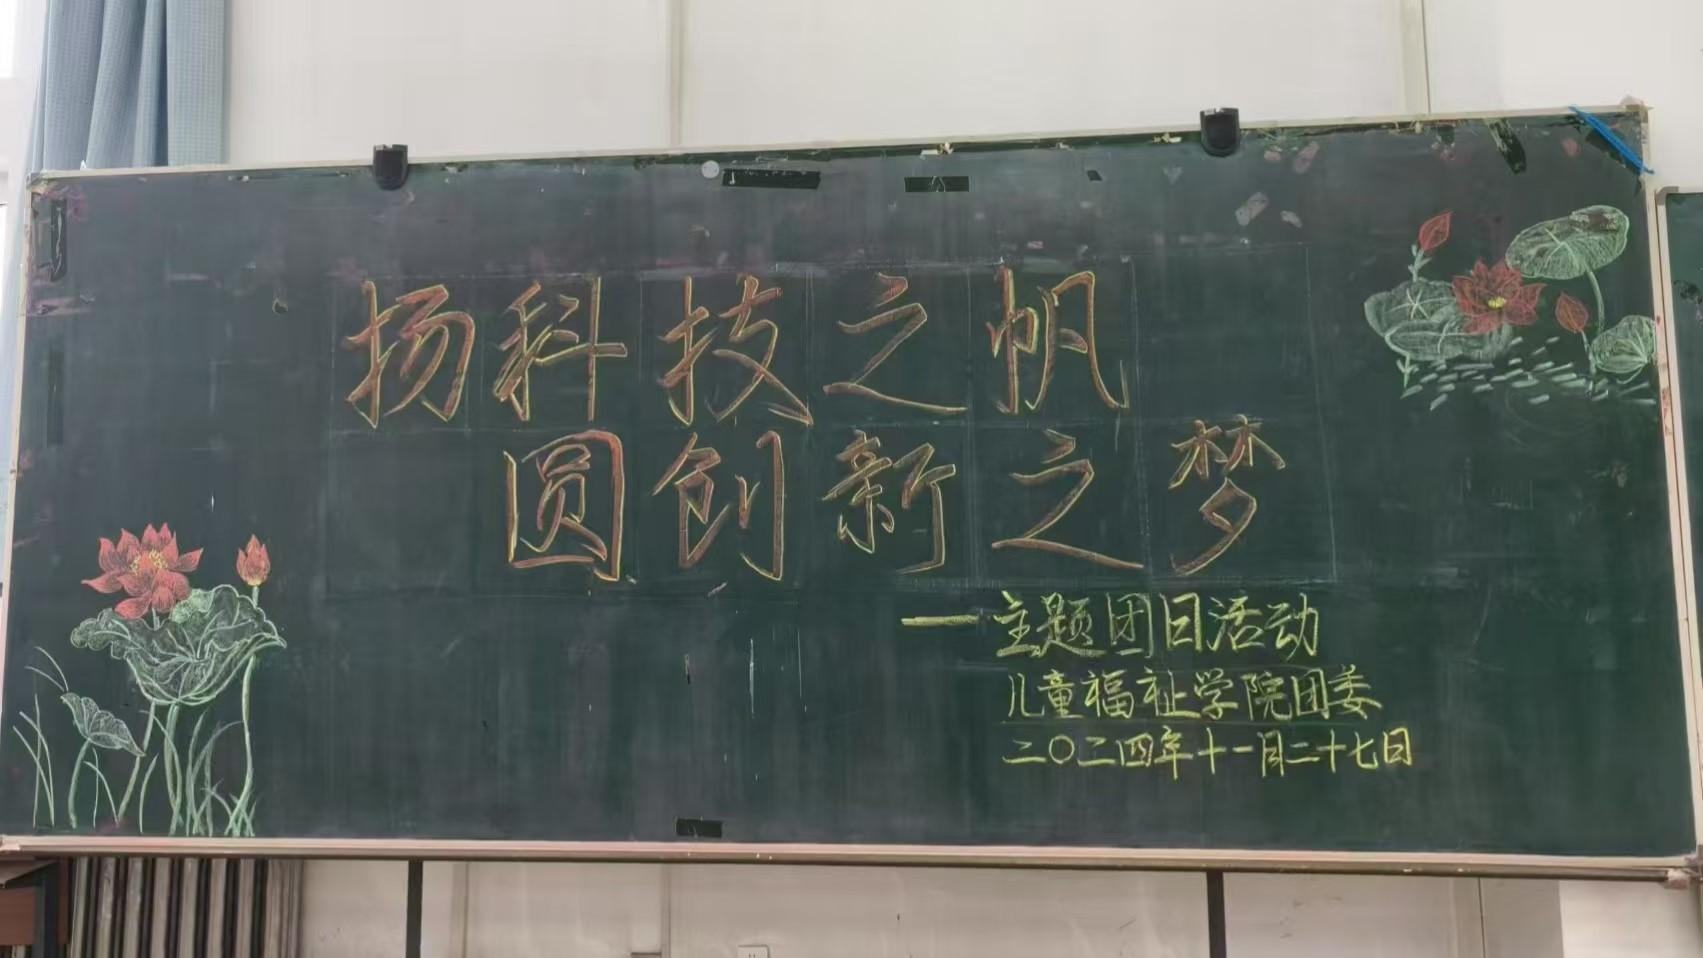 扬科技之帆
圆创新之梦
—主题团日活动
儿童福祉学院团委
二〇二四年十一月二十七日